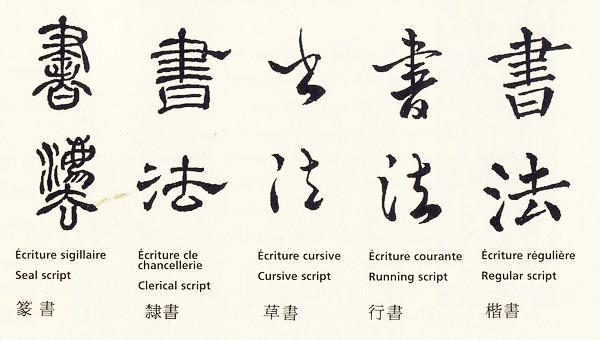 書 書 书 書 書
灋 法 法 法 法
Écriture sigillaire
Seal script
篆 書
Écriture cle
chancellerie
Clerical script
隸書
Écriture cursive
Cursive script
草書
Écriture courante
Running script
行書
Écriture régulière
Regular script
楷書